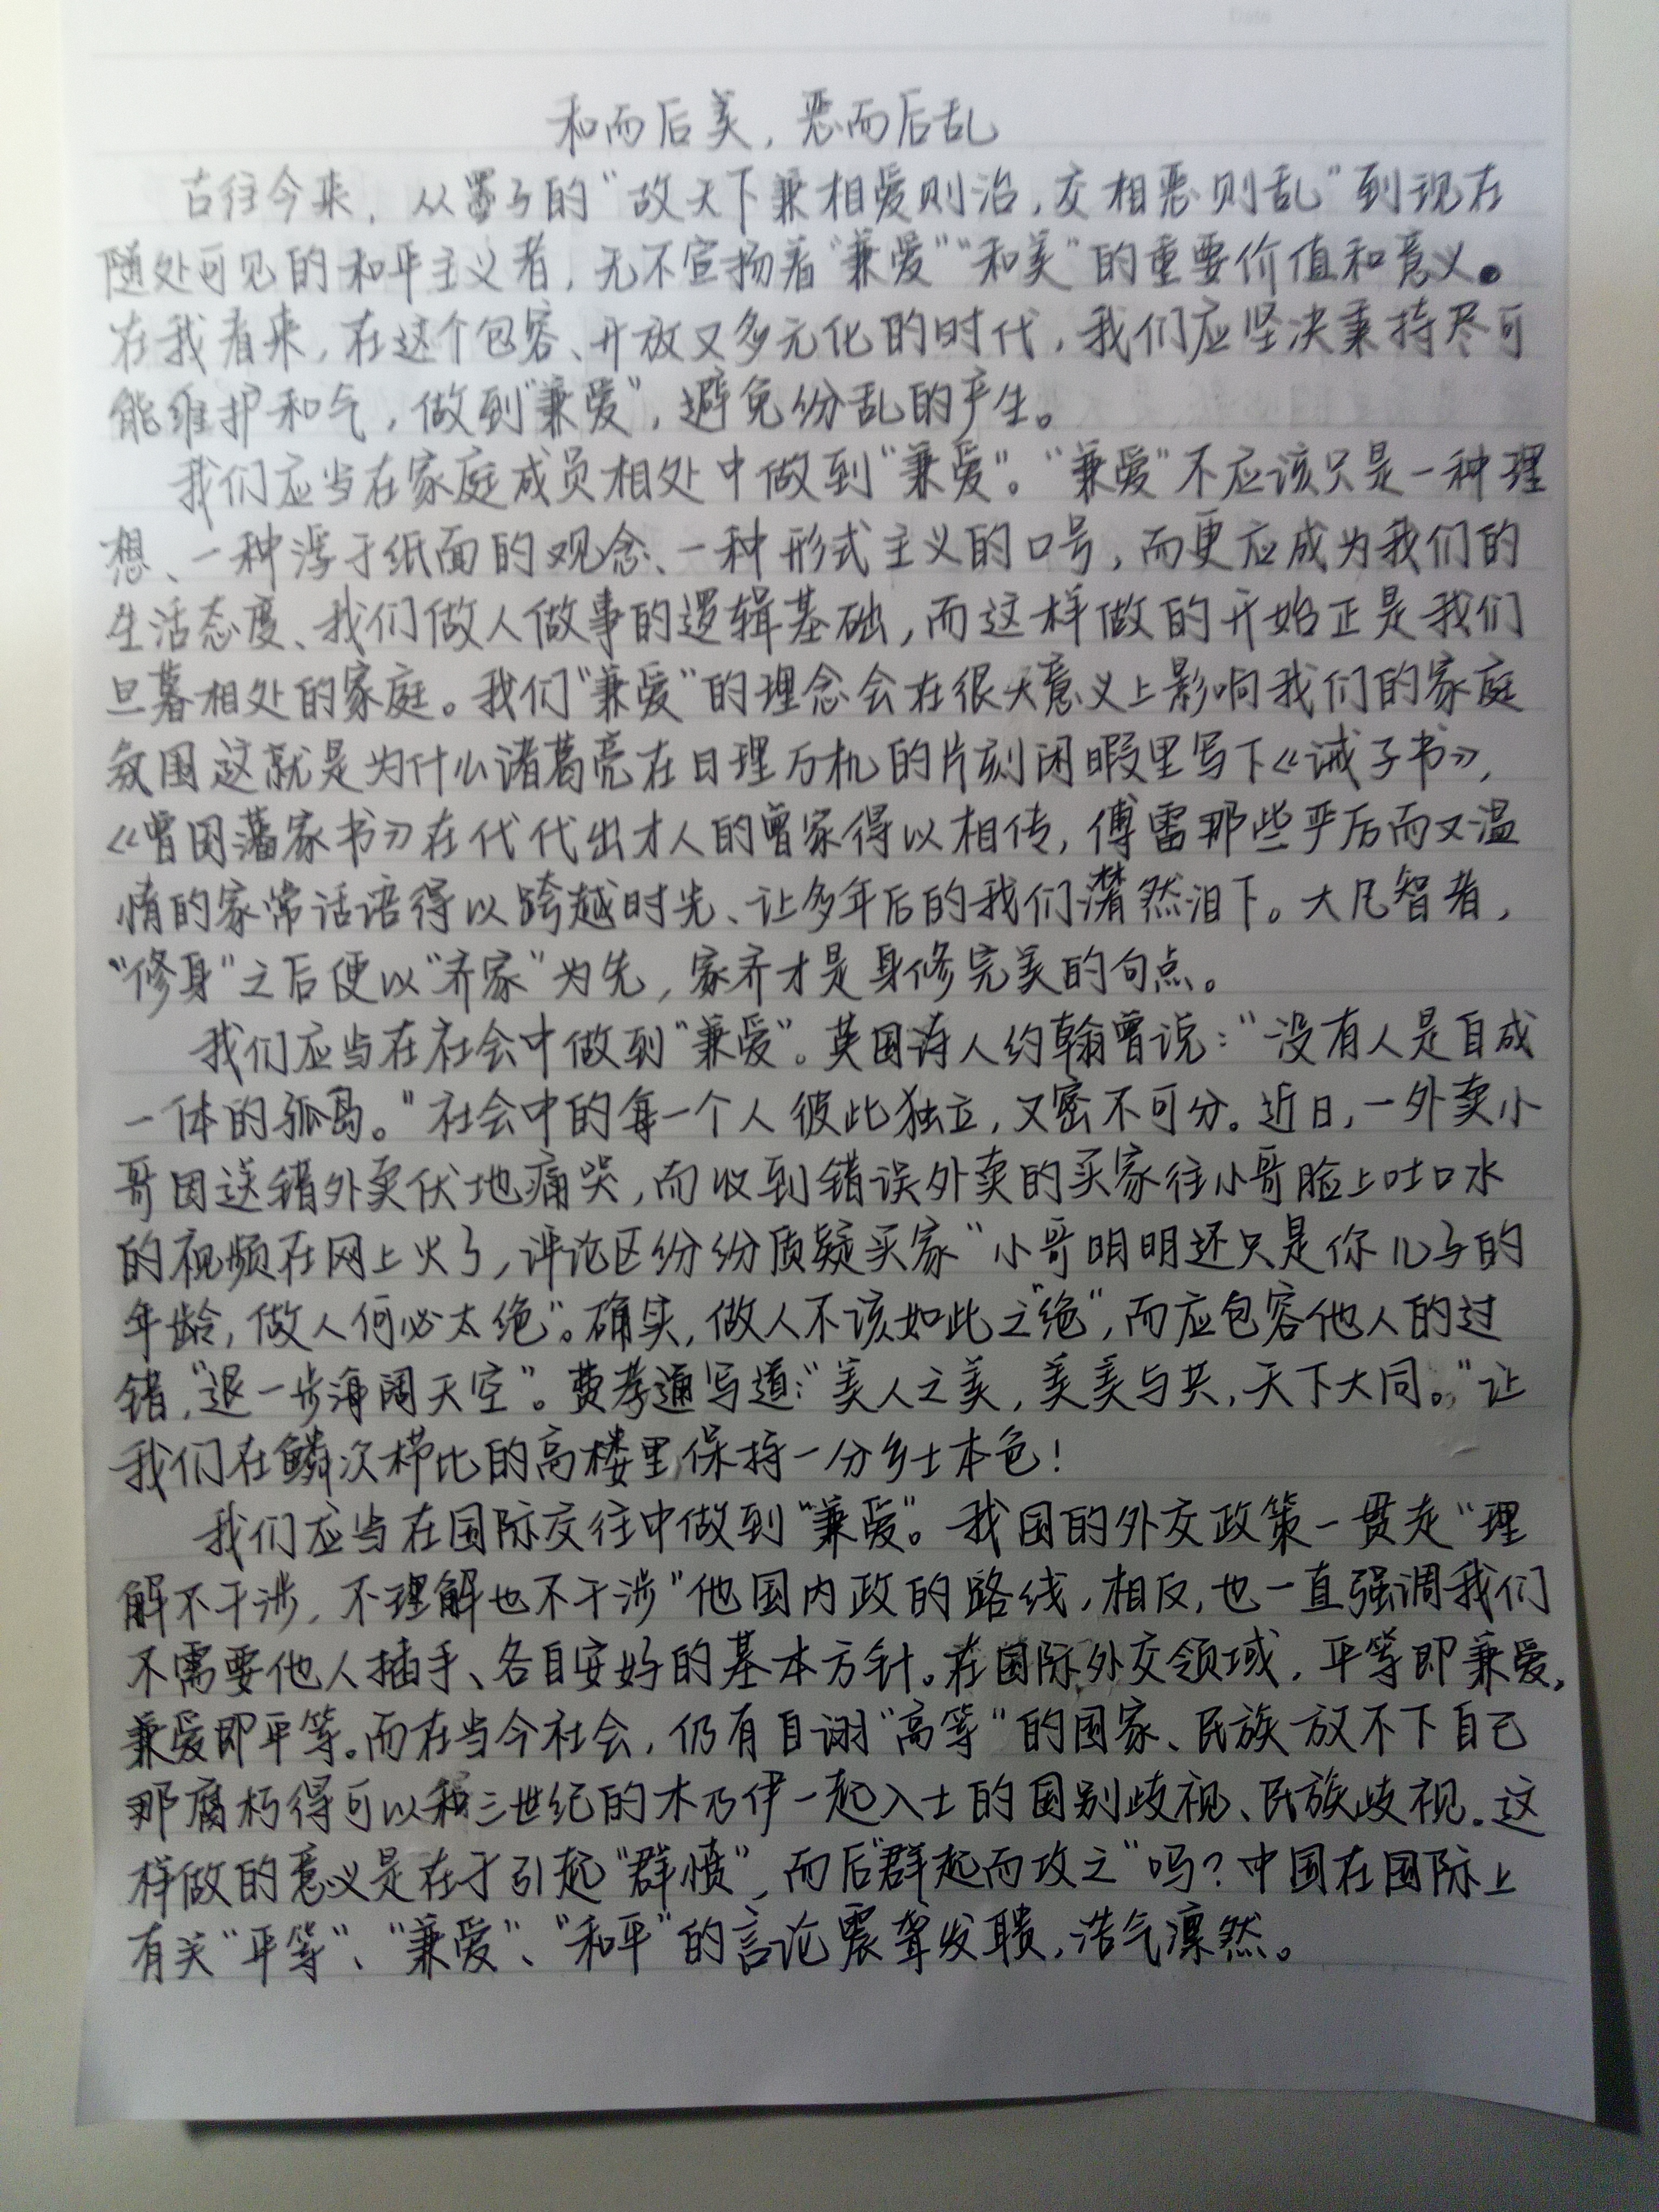 和而后美，恶而后乱
古往今来，从墨子的“故天下兼相爱则治，交相恶则乱”到现在
随处可见的和平主义者，无不宣扬着“兼爱”“和美”的重要价值和意义。
在我看来，在这个包容、开放又多元化的时代，我们应坚决秉持尽可
能维护和气，做到“兼爱”，避免纷乱的产生。
我们应当在家庭成员相处中做到“兼爱”。“兼爱”不应该只是一种理
想、一种浮于纸面的观念、一种形式主义的口号，而更应成为我们的
生活态度、我们做人做事的逻辑基础，而这样做的开始正是我们
旦暮相处的家庭。我们“兼爱”的理念会在很大意义上影响我们的家庭
氛围这就是为什么诸葛亮在日理万机的片刻闲暇里写下《诫子书》，
《曾国藩家书》在代代出才人的曾家得以相传，傅雷那些严厉而又温
情的家常话语得以跨越时光、让多年后的我们潸然泪下。大凡智者，
“修身”之后便以“齐家”为先，家齐才是身修完美的句点。
我们应当在社会中做到“兼爱”。英国诗人约翰曾说：“没有人是自成
一体的孤岛。”社会中的每一个人彼此独立，又密不可分。近日，一外卖小
哥因送错外卖伏地痛哭，而收到错误外卖的买家往小哥脸上吐口水
的视频在网上火了，评论区纷纷质疑买家“小哥明明还只是你儿子的
年龄，做人何必太绝”。确实，做人不该如此之“绝”，而应包容他人的过
错，“退一步海阔天空”。费孝通写道：“美人之美，美美与共，天下大同。”让
我们在鳞次栉比的高楼里保持一分乡土本色！
我们应当在国际交往中做到“兼爱”。我国的外交政策一贯走“理
解不干涉，不理解也不干涉”他国内政的路线，相反，也一直强调我们
不需要他人插手、各自安好的基本方针。在国际外交领域，平等即兼爱，
兼爱即平等。而在当今社会，仍有自诩“高等”的国家、民族放不下自己
那腐朽得可以和三世纪的木乃伊一起入土的国别歧视、民族歧视。这
样做的意义是在于引起“群愤”，而后“群起而攻之”吗？中国在国际上
有关“平等”、“兼爱”、“和平”的言论震聋发聩，浩气凛然。